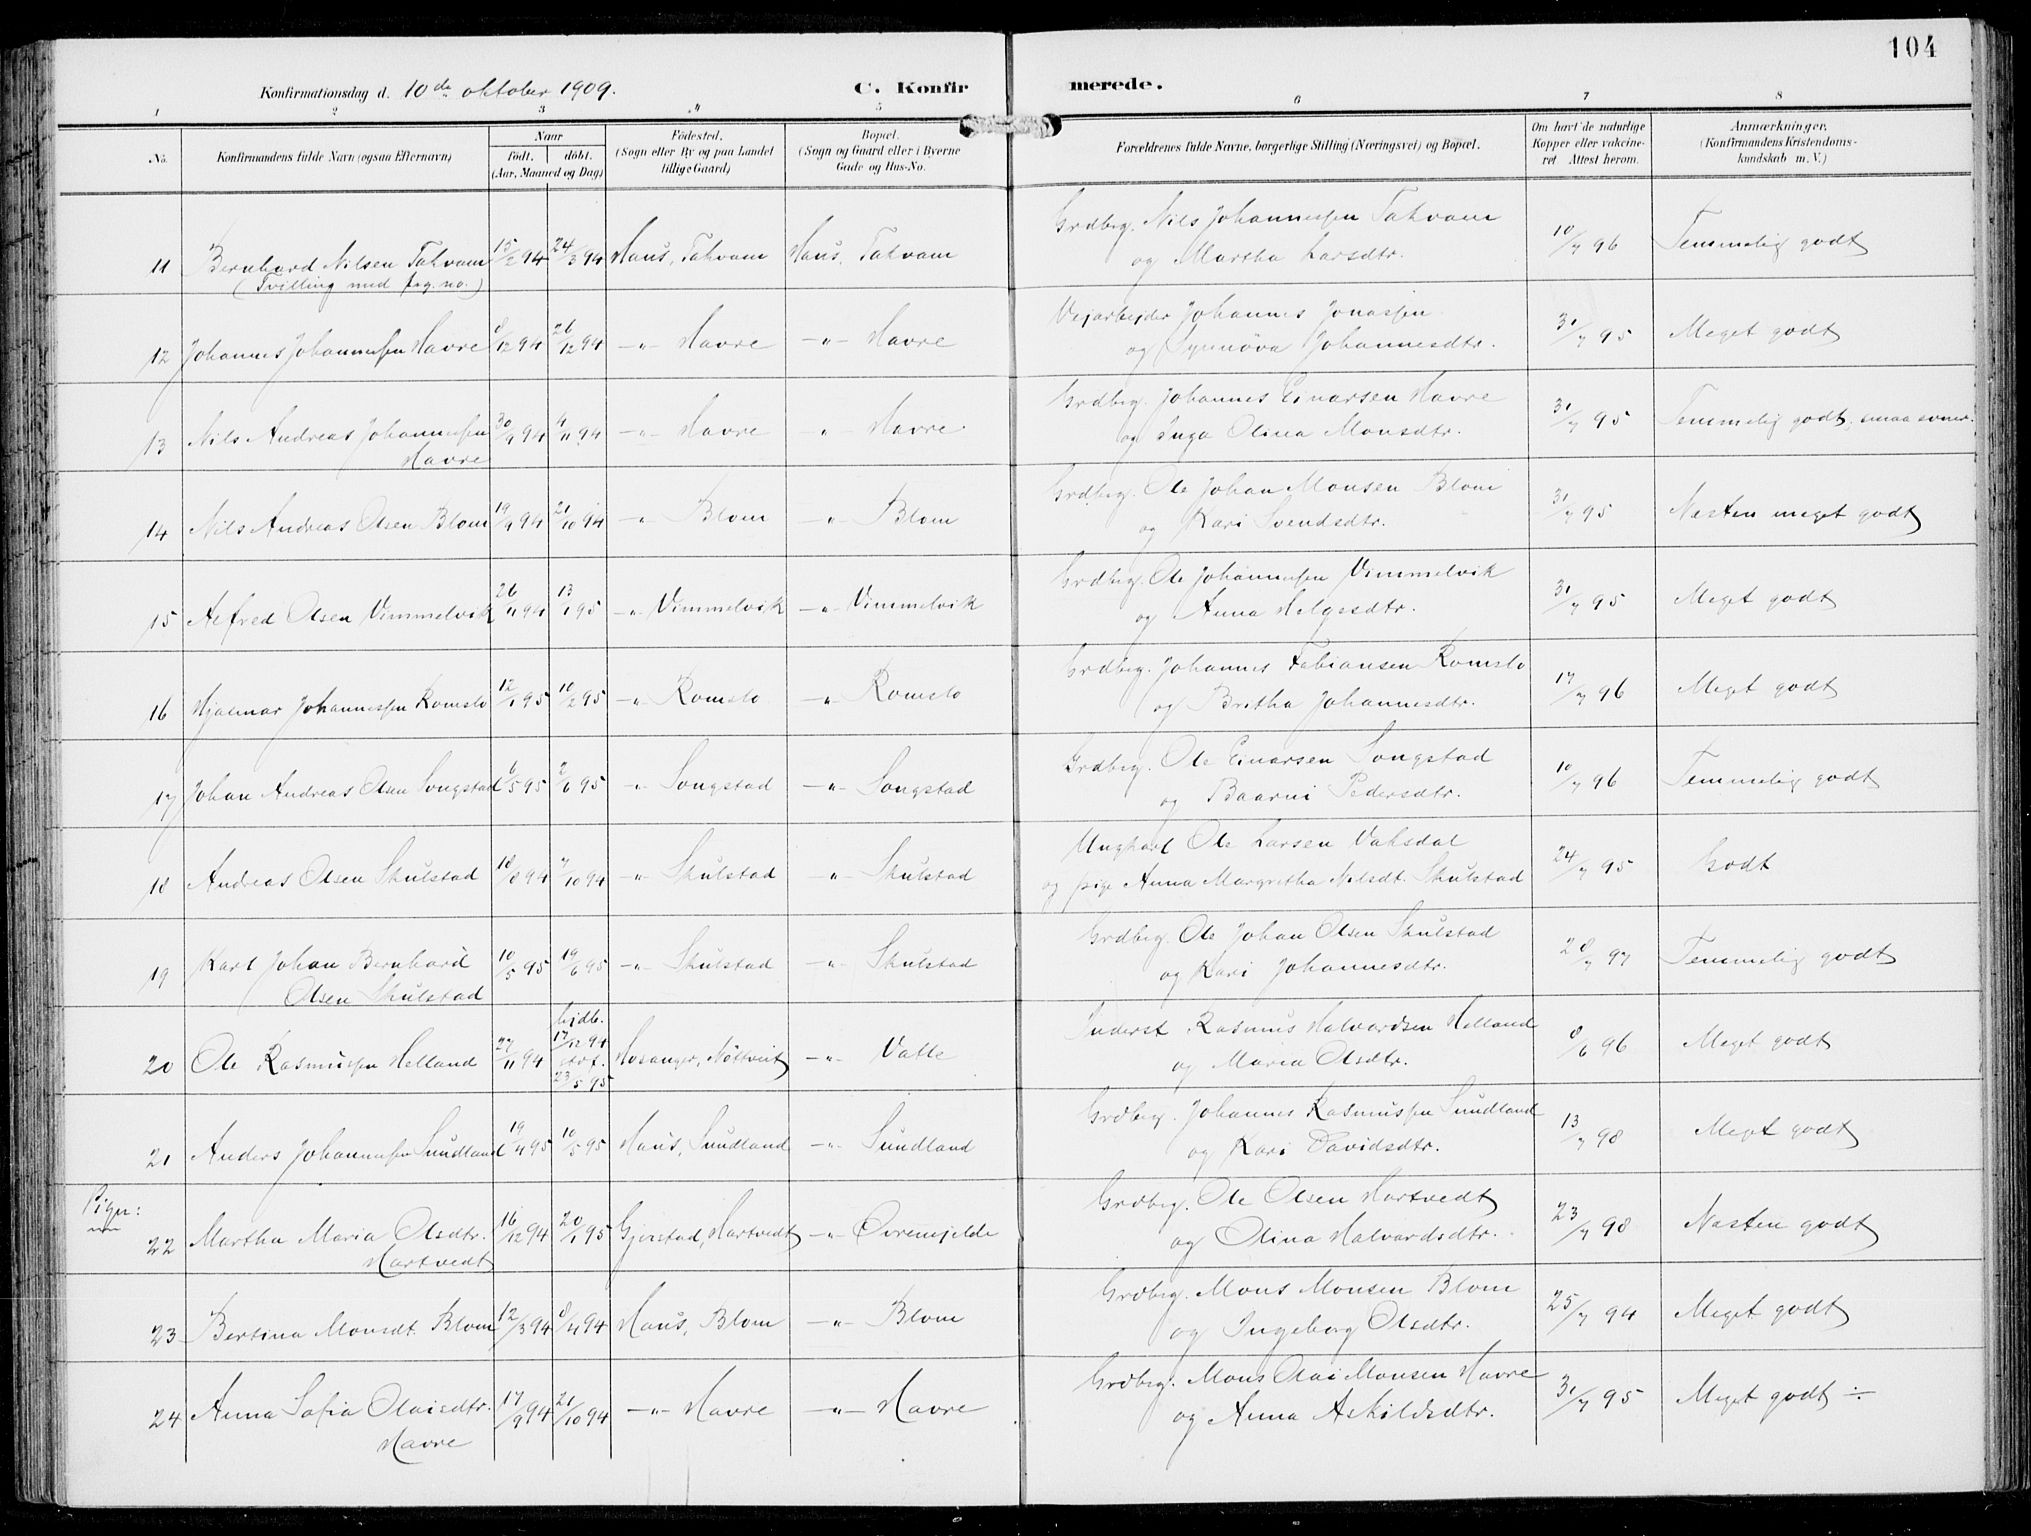 104
Konfirmationsdag d. 10de oktober 1909.
C. Konfirmerede.
1 2 3 4 5 6 7 8
No. Konfirmandens fulde Navn (ogsaa Efternavn) Naar födt. döbt. (Aar, Maaned og Dag) Födested. (Sogn eller By og paa Landet tillige Gaard) Bopæl. (Sogn og Gaard eller i Byerne Gade og Hus-No. Forældrenes fulde Navne, borgerlige Stilling (Næringsvei) og Bopæl. Om havt de naturlige Kopper eller vakcineret Attest herom. Anmærkninger. (Konfirmandens Kristendomskundskab m. V.)
Grdbrg. Nils Johannessen Takvam
11 Bernhard Nilsen Takvam 15/2 94 24/3 94 Haus, Takvam Haus, Takvam og Martha Larsdtr. 10/7 96 Temmelig godt
(Tvilling med frg. no.)
Vejarbejder Johannes Jonassen
12 Johannes Johannessen Havre 8/12 94 26/12 94 -"- Havre -"- Havre og Synnöva Johannesdtr. 31/7 95 Meget godt
Grdbrg. Johannes Einarsen Havre
13 Nils Andreas Johannessen 30/9 94 4/11 94 -"- Havre " Havre og Inga Olina Monsdtr. 31/7 95 Temmelig godt, smaa evner.
Havre
Grdbrg. Ole Johan Monsen Blom
14 Nils Andreas Olsen Blom 19/9 94 21/10 94 -"- Blom -"- Blom og Kari Svendsdtr. 31/7 95 Næsten meget godt
Grdbrg. Ole Johannessen Vimmelvik
15 Alfred Olsen Vimmelvik 26/11 94 13/1 95 -"- Vimmelvik -"- Vimmelvik og Anna Helgesdtr. 31/7 95 Meget godt
Grdbrg. Johannes Fabiansen Romslo
16 Hjalmar Johannessen Romslo 12/1 95 10/2 95 -"- Romslo -"- Romslo og Britha Johannesdtr. 17/7 96 Meget godt
Grdbrg. Ole Einarsen Songstad
17 Johan Andreas Olsen Songstad 6/5 95 2/6 95 -"- Songstad -"- Songstad og Baarni Pedersdtr. 10/7 96 Temmelig godt
Ungkarl Ole Larsen Vaksdal
18 Andreas Olsen Skulstad 18/8 94 7/10 94 -"- Skulstad -"- Skulstad og pige Anna Margretha Nilsdt. Skulstad 24/7 95 Godt
Grdbrg. Ole Johan Olsen Skulstad
19 Karl Johan Bernhard 10/5 95 19/6 95 -"- Skulstad -"- Skulstad og Kari Johannesdtr. 28/7 97 Temmelig godt
Olsen Skulstad
hjdb. Inderst Rasmus Halvardsen Helland
20 Ole Rasmussen Helland 27/11 94 17/12 94 stdf. 23/5 95 Hosanger, Nöttveit -"- Vatle og Maria Olsdtr. 8/6 96 Meget godt
Grdbrg. Johannes Rasmussen Sundland
21 Anders Johannessen Sundland 19/4 95 10/5 95 Haus, Sundland -"- Sundland og Kari Davidsdtr. 13/7 98 Meget godt
Piger:
Grdbrg. Ole Olsen Hartvedt
22 Martha Maria Olsdtr. 16/12 94 20/1 95 Gjerstad, Hartvedt -"- Övremjelde og Olina Halvardsdtr. 23/7 98 Næsten godt
Hartvedt
Grdbrg. Mons Monsen Blom
23 Bertina Monsdt. Blom 12/3 94 8/4 94 Haus, Blom -"- Blom og Ingeborg Olsdtr. 25/7 94 Meget godt
Grdbrg. Mons Olai Monsen Havre
24 Anna Sofia Olaisdtr. 17/9 94 21/10 94 -"- Havre -"- Havre og Anna Askildsdtr. 31/7 95 Meget godt ÷
Havre